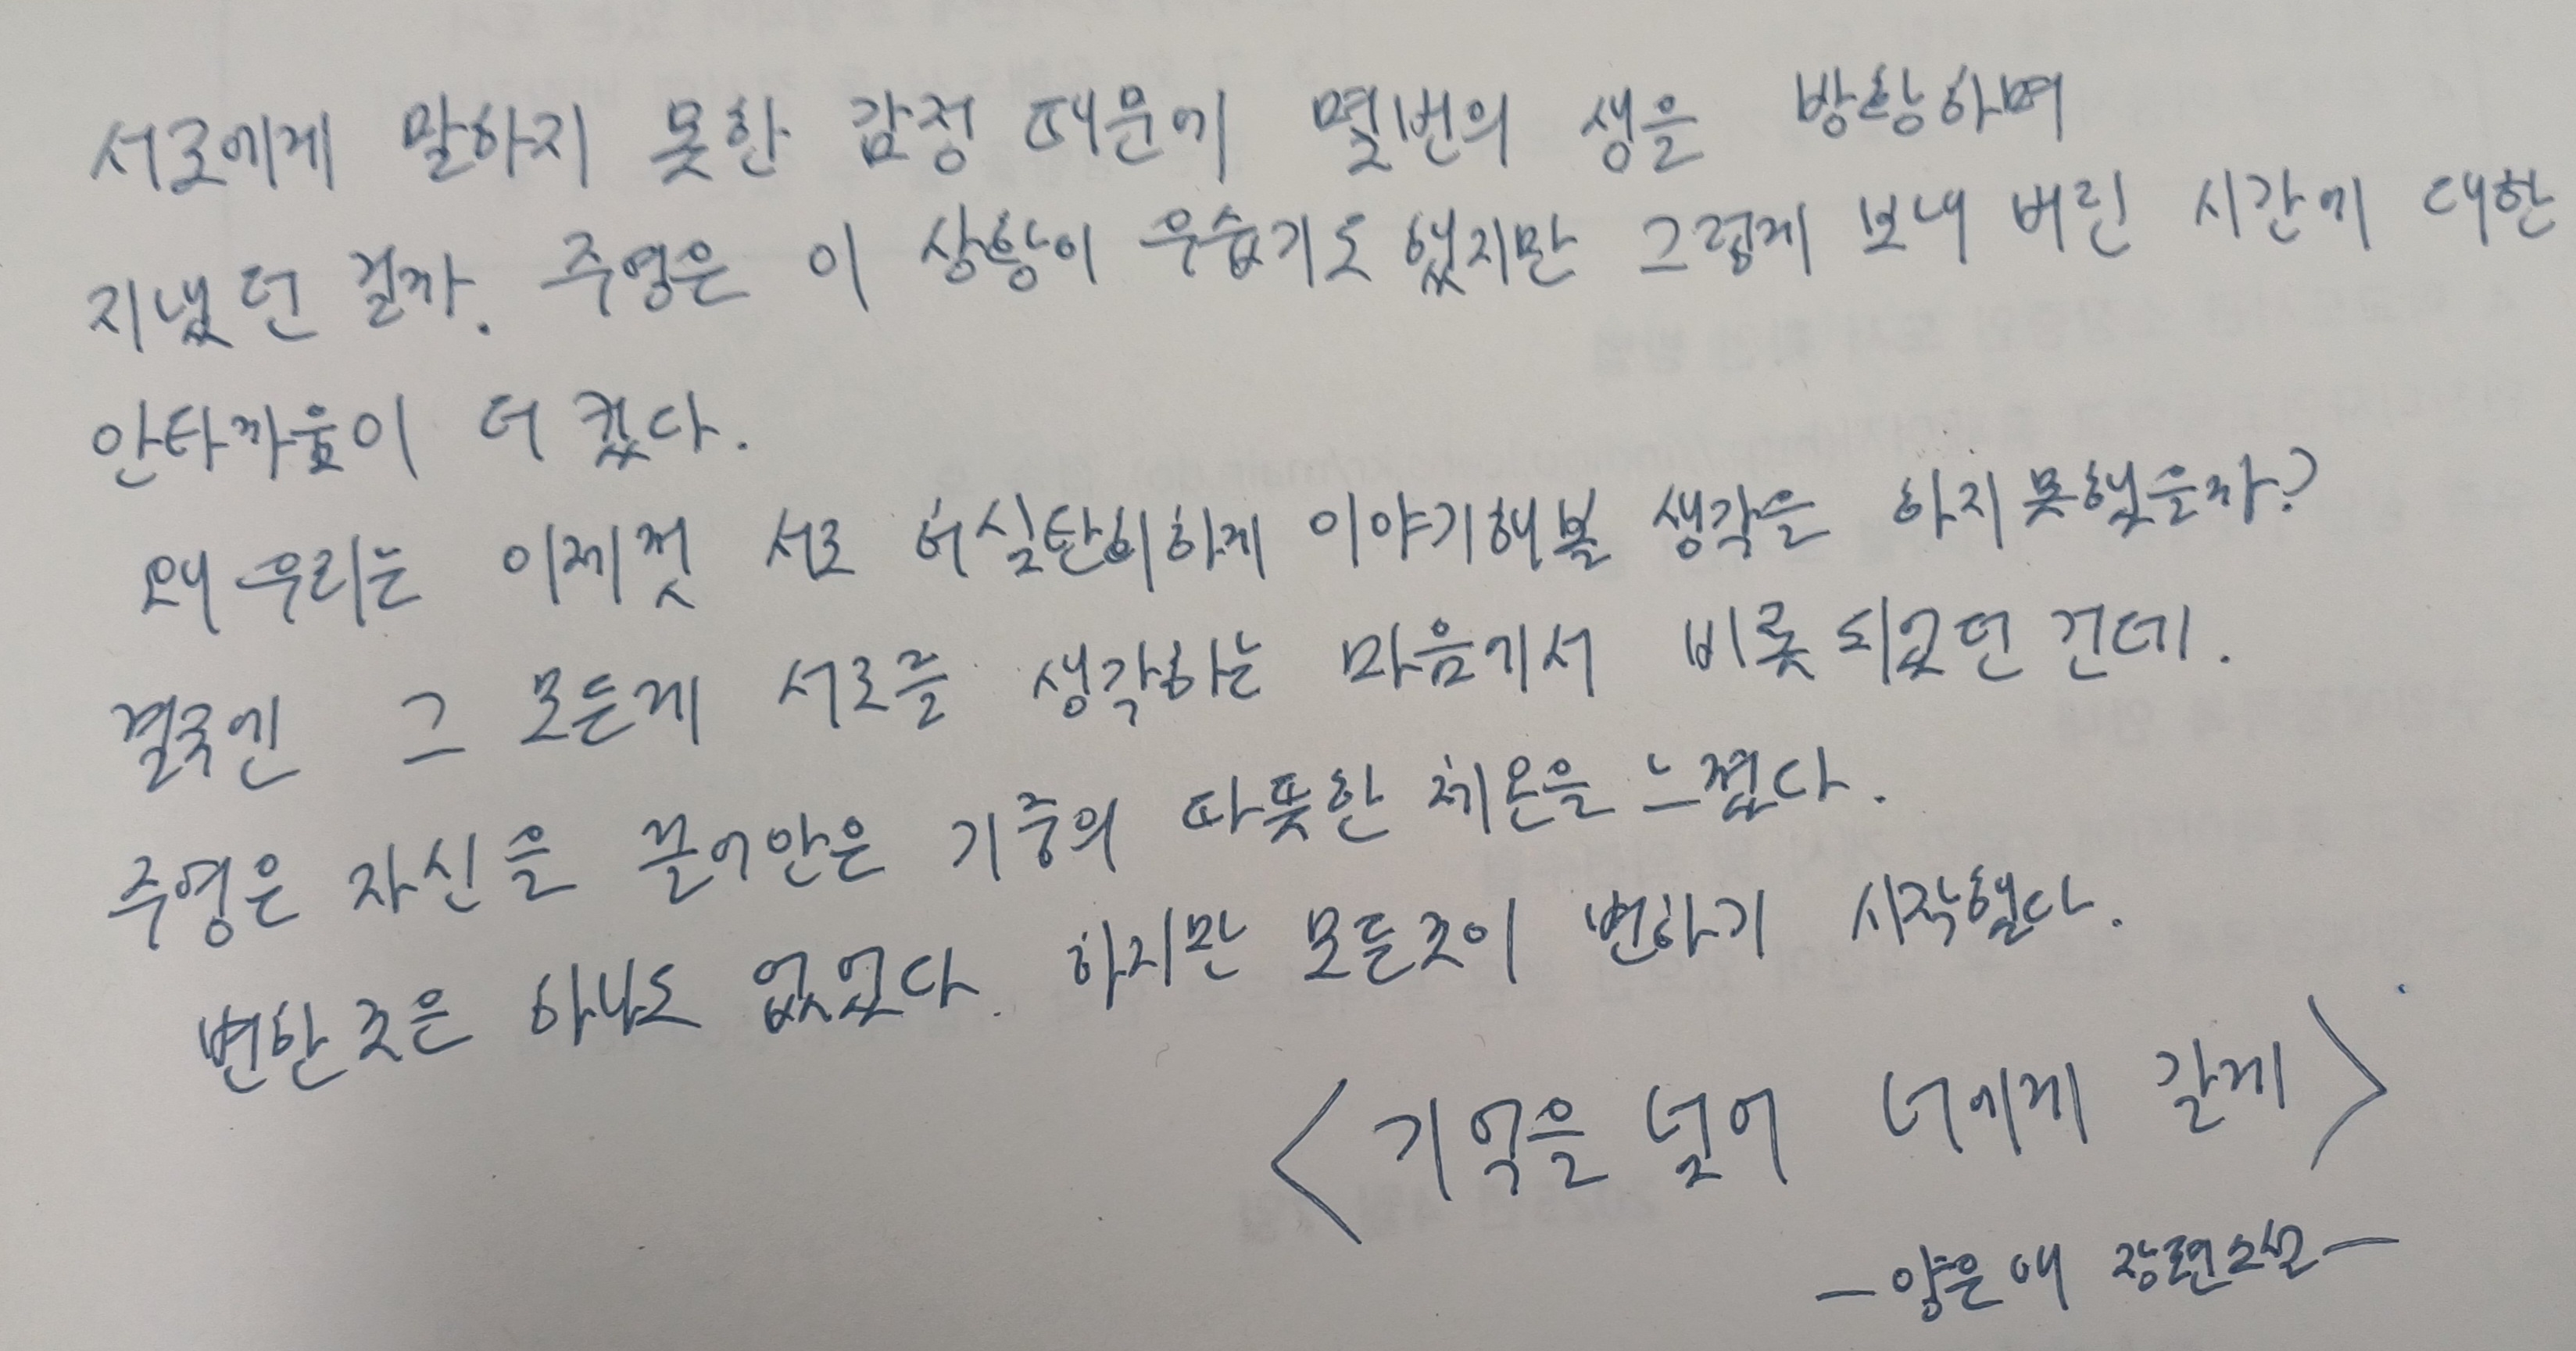 서로에게 말하지 못한 감정 때문에 몇번의 생을 방황하며
지냈던 걸까. 주영은 이 상황이 우습기도 했지만 그렇게 보내 버린 시간에 대한
안타까움이 더 컸다.
왜 우리는 이제껏 서로 허심탄회하게 이야기해볼 생각을 하지 못했을까?
결국엔 그 모든게 서로를 생각하는 마음에서 비롯 되었던 건데.
주영은 자신을 끌어안은 기중의 따뜻한 체온을 느꼈다.
변한 것은 하나도 없었다. 하지만 모든것이 변하기 시작했다.
<기억을 넘어 너에게 갈게>
-양은애 장편소설-